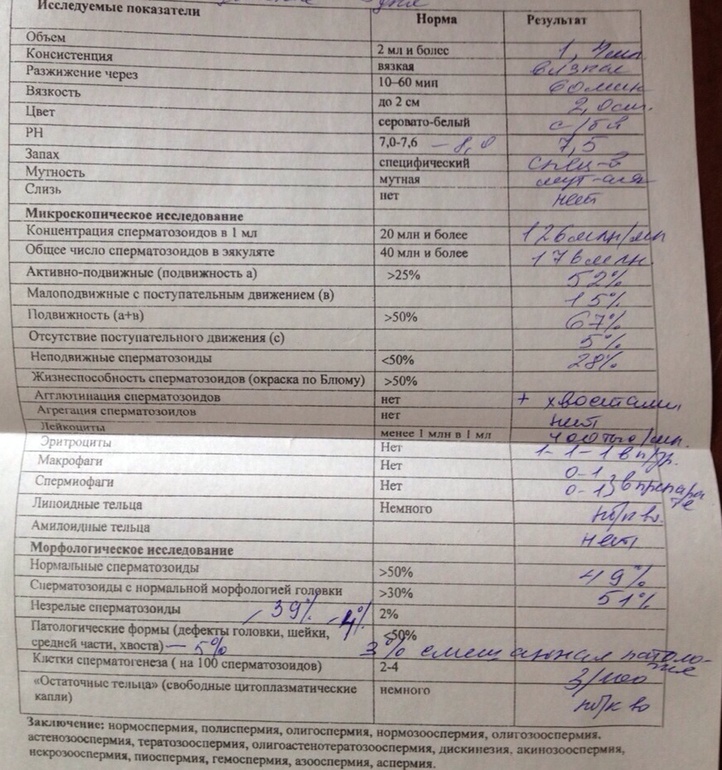 Исследуемые показатели Норма Результат
Объем 2 мл и более 1,4мл
Консистенция вязкая вязкая
Разжижение через 10–60 мин 60мин
Вязкость до 2 см 2,0см.
Цвет серовато-белый с/бел
PH 7,0-7,6 – 8,0 7,5
Запах специфический спец-й
Мутность мутная мут-ая
Слизь нет нет
Микроскопическое исследование
Концентрация сперматозоидов в 1 мл 20 млн и более 126млн/мл
Общее число сперматозоидов в эякуляте 40 млн и более 176млн.
Активно-подвижные (подвижность а) >25% 52%
Малоподвижные с поступательным движением (в) 15%
Подвижность (а+в) >50% 67%
Отсутствие поступательного движения (с) 5%
Неподвижные сперматозоиды <50% 28%
Жизнеспособность сперматозоидов (окраска по Блюму) >50%
Агглютинация сперматозоидов нет + хвостами
Агрегация сперматозоидов нет нет
Лейкоциты менее 1 млн в 1 мл 400тыс/мл.
Эритроциты Нет 1-1-1 в п/зр.
Макрофаги Нет 0-1
Спермиофаги Нет 0-1, в препарате
Липоидные тельца Немного
Амилоидные тельца нет
Морфологическое исследование
Нормальные сперматозоиды >50% 49%
Сперматозоиды с нормальной морфологией головки >30% 51%
Незрелые сперматозоиды 2%
39% 4%
Патологические формы (дефекты головки, шейки, <50%
средней части, хвоста) — 5% 3% смешанная патология
Клетки сперматогенеза ( на 100 сперматозоидов) 2-4 3/100
«Остаточные тельца» (свободные цитоплазматические немного
капли)
Заключение: нормоспермия, полиспермия, олигоспермия, нормозооспермия, олигозооспермия,
астенозооспермия, тератозооспермия, олигоастенотератозооспермия, дискинезия, акинозооспермия,
некрозооспермия, пиоспермия, гемоспермия, азооспермия, аспермия.